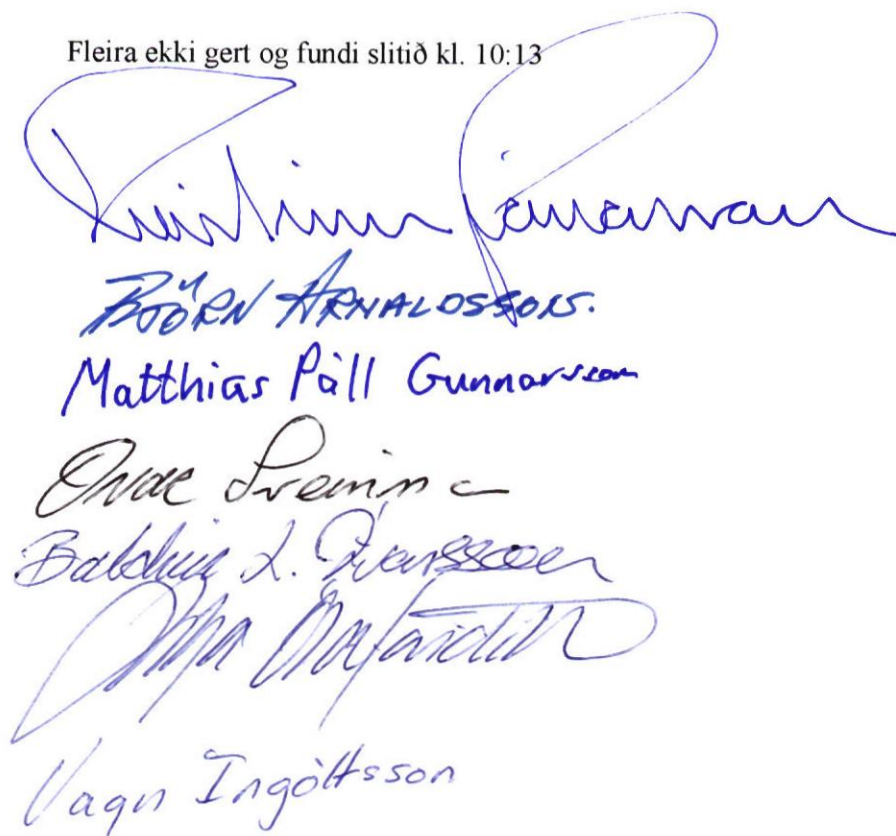 Fleira ekki gert og fundi slitið kl. 10:13
Kristinn Jónasson
BJÖRN ARNALDSSON.
Matthias Páll Gunnarsson
Baldvin L. Ívarsson
Vagn Ingólfsson